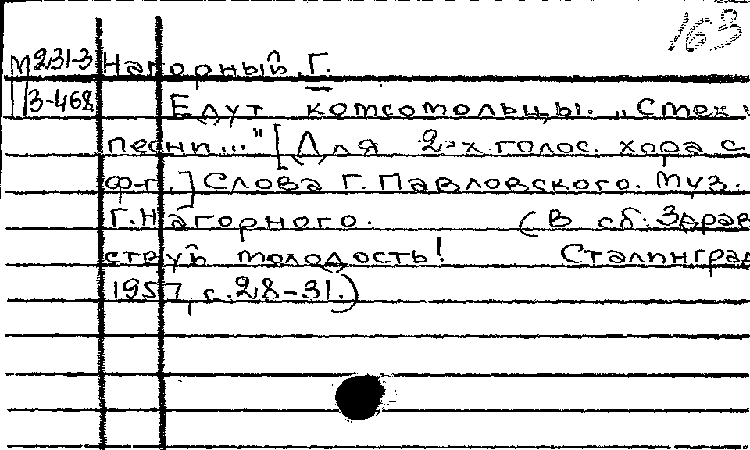 163
М231-3 Нагорный, Г.
З-468 Едут комсомольцы. "Смех и
песни..." [Для 2-х голос. хора с
ф-п.] Слова Г. Павловского. Муз.
Г. Нагорного. (В сб: Здрав
ствуй молодость! Сталинград
1957, с. 28-31.)